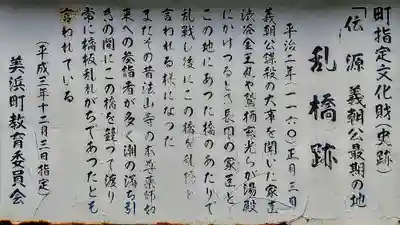 町指定文化財(史跡)
「伝 源 義朝公最期の地
乱橋跡
平治二年(一一六〇)正月三日
義朝公謀殺の大事を聞いた家臣
渋谷金王丸や鷲栖玄光らが湯殿
にかけつるとき長田の家臣と
この地にあった橋のあたりで
乱戦し後にこの橋を乱橋と
言われる様になった
またその昔法山寺の本尊薬師如
来への参詣者が多く潮の満ち引
きの間にこの橋を競って渡り
常に橋板乱れがちであったとも
言われている
(平成三年十二月三日指定)
美浜町教育委員会